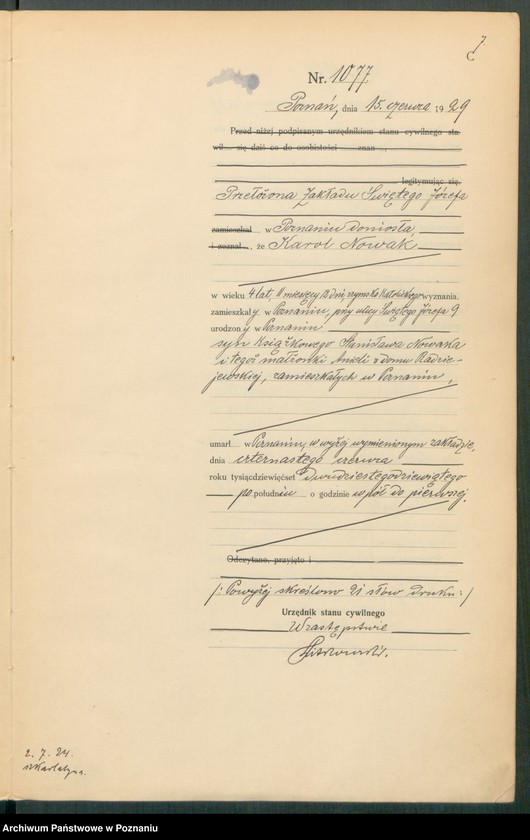 7
Nr. 1077
Poznań, dnia 15. czerwca 1929
Przed niżej podpisanym urzędnikiem stanu cywilnego sta-
wił się dziś co do osobistości znan
legitymując się.
Przełożona Zakładu Swiętego Józefa
zamieszkał w Poznaniu doniosła,
i zeznał, że Karol Nowak
w wieku 4 lat, 11 miesięcy, 12 dni, rzymsko katolickiego wyznania.
zamieszkały w Poznaniu, przy ulicy Swiętego Józefa 9
urodzony w Poznaniu
syn Książkowego Stanisława Nowaka
i tegoż małżonki Anieli z domu Radzie-
jewskiej, zamieszkałych w Poznaniu,
umarł w Poznaniu, w wyżej wymienionym zakładzie,
dnia czternastego czerwca
roku tysiącdziewięćset dwudziestegodziewiątego
po południu o godzinie wpół do pierwszej.
Odczytano, przyjęto i
/: Powyżej skreślono 21 słów druku :/
Urzędnik stanu cywilnego
W zastępstwie
2. 7. 24.
szkarlatyna.
Archiwum Państwowe w Poznaniu